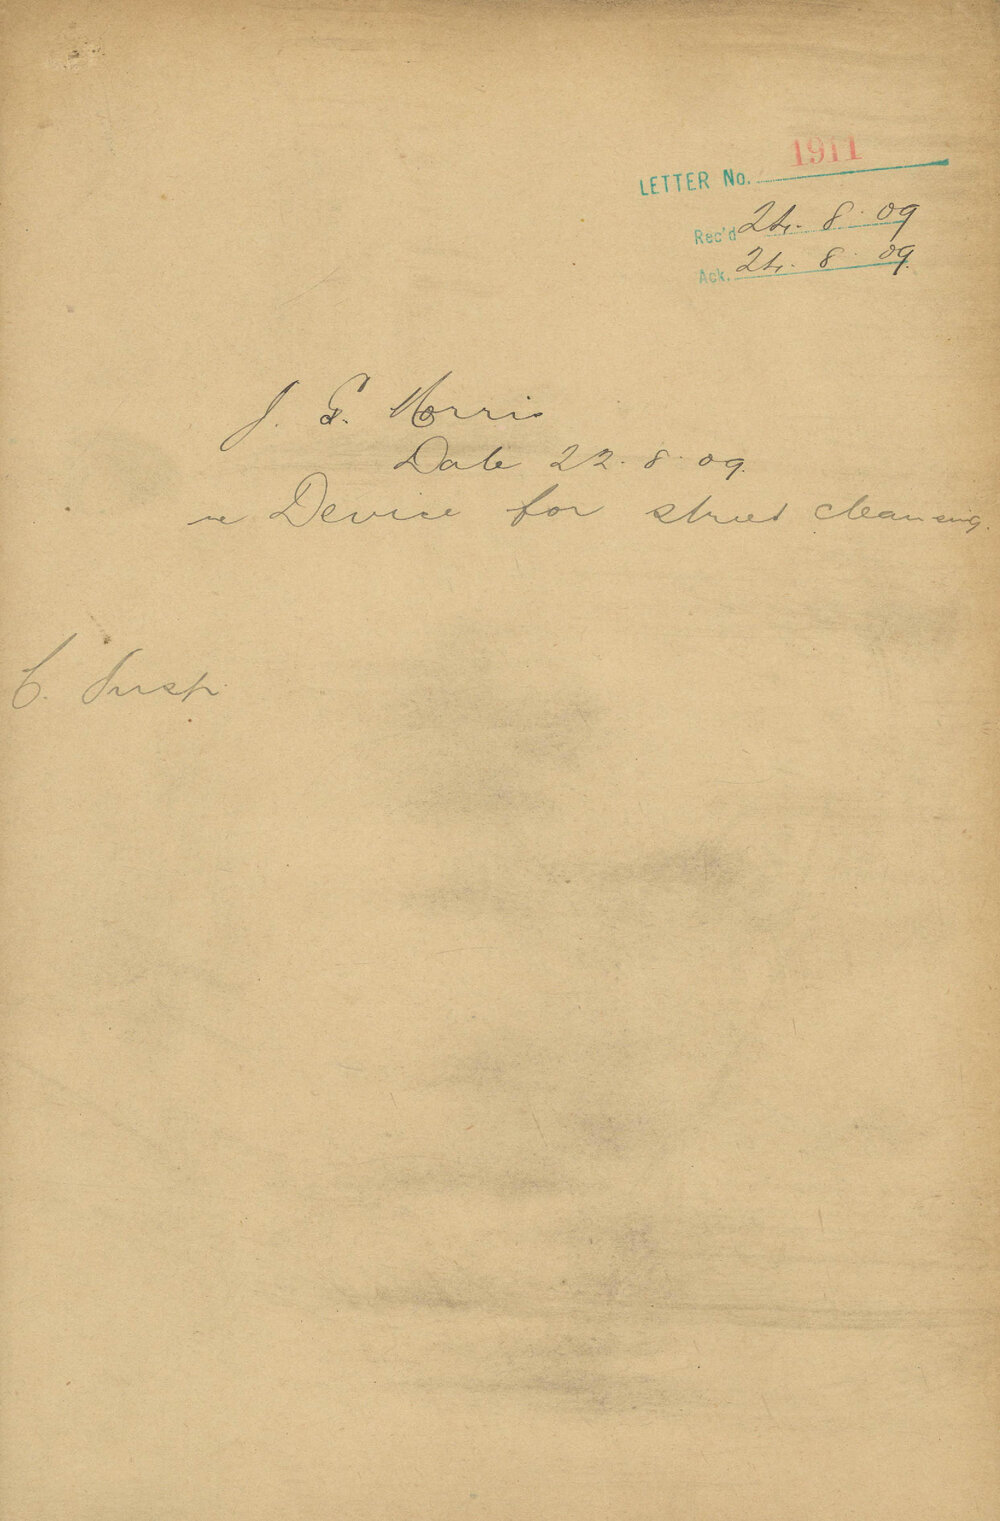 LETTER No. 1911
Rec'd 24. 8. 09
Ack. 24. 8. 09.
J. G. Morris
Date 22. 8. 09.
re Device for street cleansing.
C. Insp.